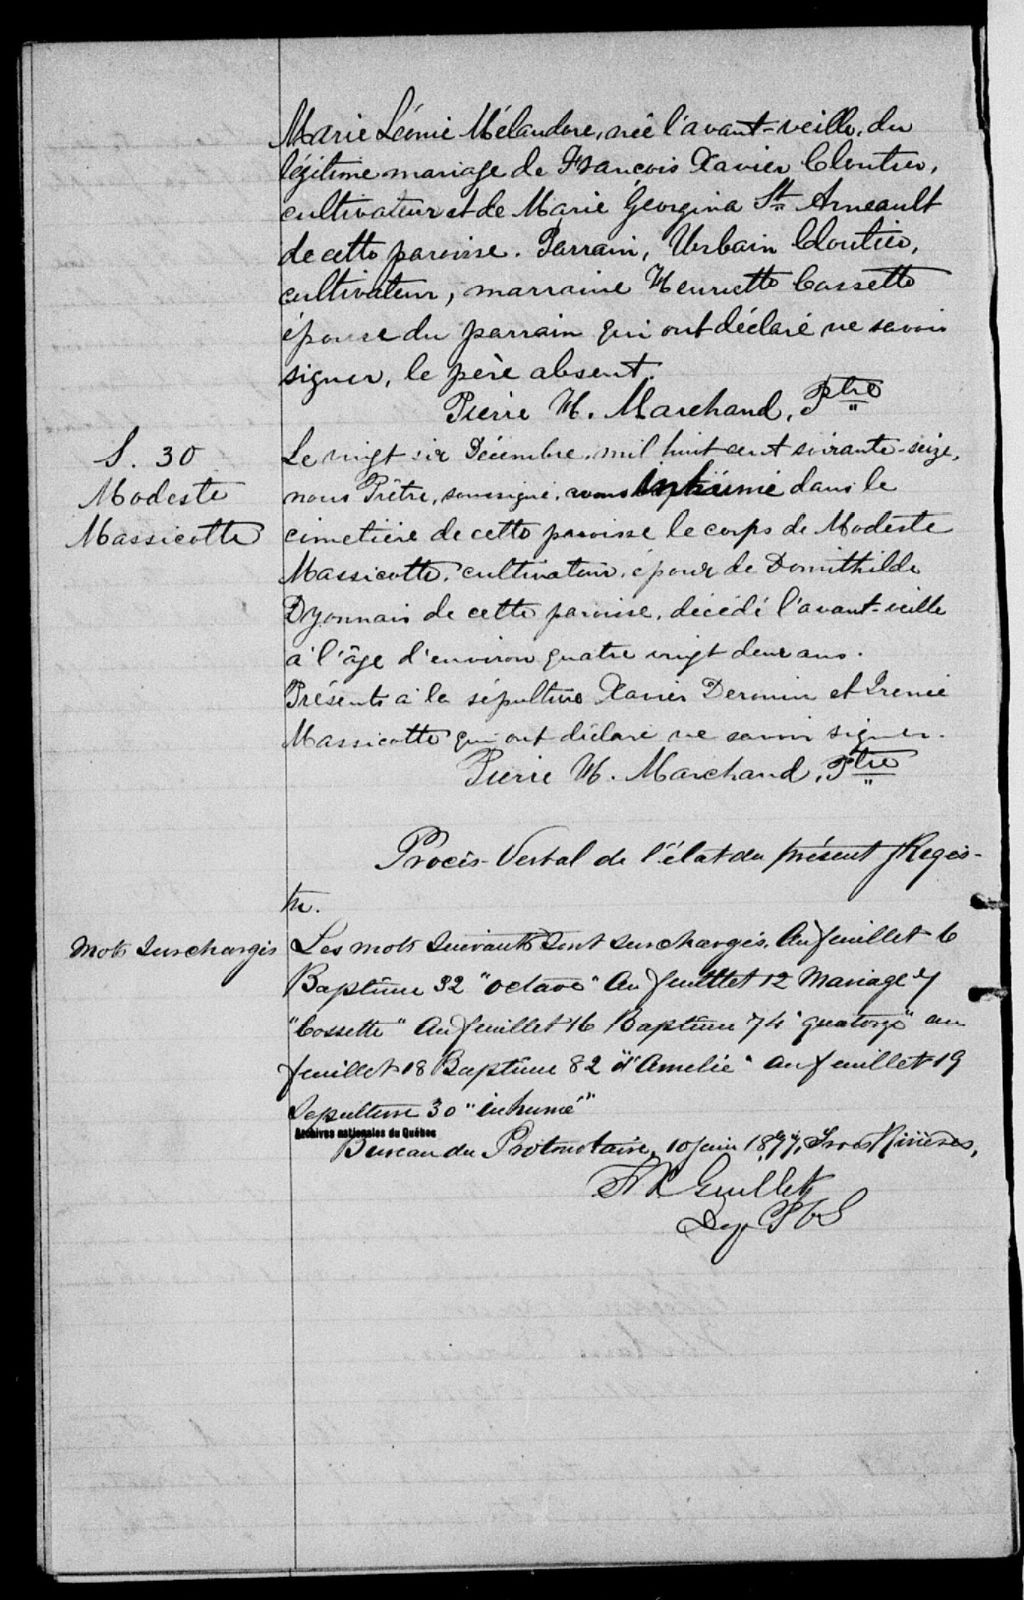 Marie Léonie Mélandore, née l'avant-veille, du
légitime mariage de François Xavier Cloutier,
cultivateur et de Marie Georgina St Arneault
de cette paroisse. Parrain, Urbain Cloutier,
cultivateur, marraine Henriette Cossette
épouse du parrain qui ont déclaré ne savoir
signer, le père absent.
Pierre H. Marchand, Ptre
S. 30
Modeste
Massicotte
Le vingt six Décembre, mil huit cent soixante-seize,
nous Prêtre, soussigné, avons inhumé dans le
cimetière de cette paroisse le corps de Modeste
Massicotte, cultivateur, époux de Domithilde
Dyonnais de cette paroisse, décédé l'avant-veille
à l'âge d'environ quatre vingt deux ans.
Présents à la sépulture Xavier et Irénée
Massicotte qui ont déclaré ne savoir signer.
Pierre H. Marchand, Ptre
Procès-Verbal de l'état du présent Regis-
tre.
Mots surchargés
Les mots suivants sont surchargés. Au feuillet 6
Baptême 32 "octave" Au feuillet 12 Mariage 7
"Cossette" Au feuillet 16 Baptême 74 "quatorze" au
feuillet 18 Baptême 82 "Amelie" au feuillet 19
Sepulture 30 "inhumé"
Archives nationales du Québec
Bureau du Protonotaire, 10 juin 1877, Trois Rivières,
Guillet
Dep P C S